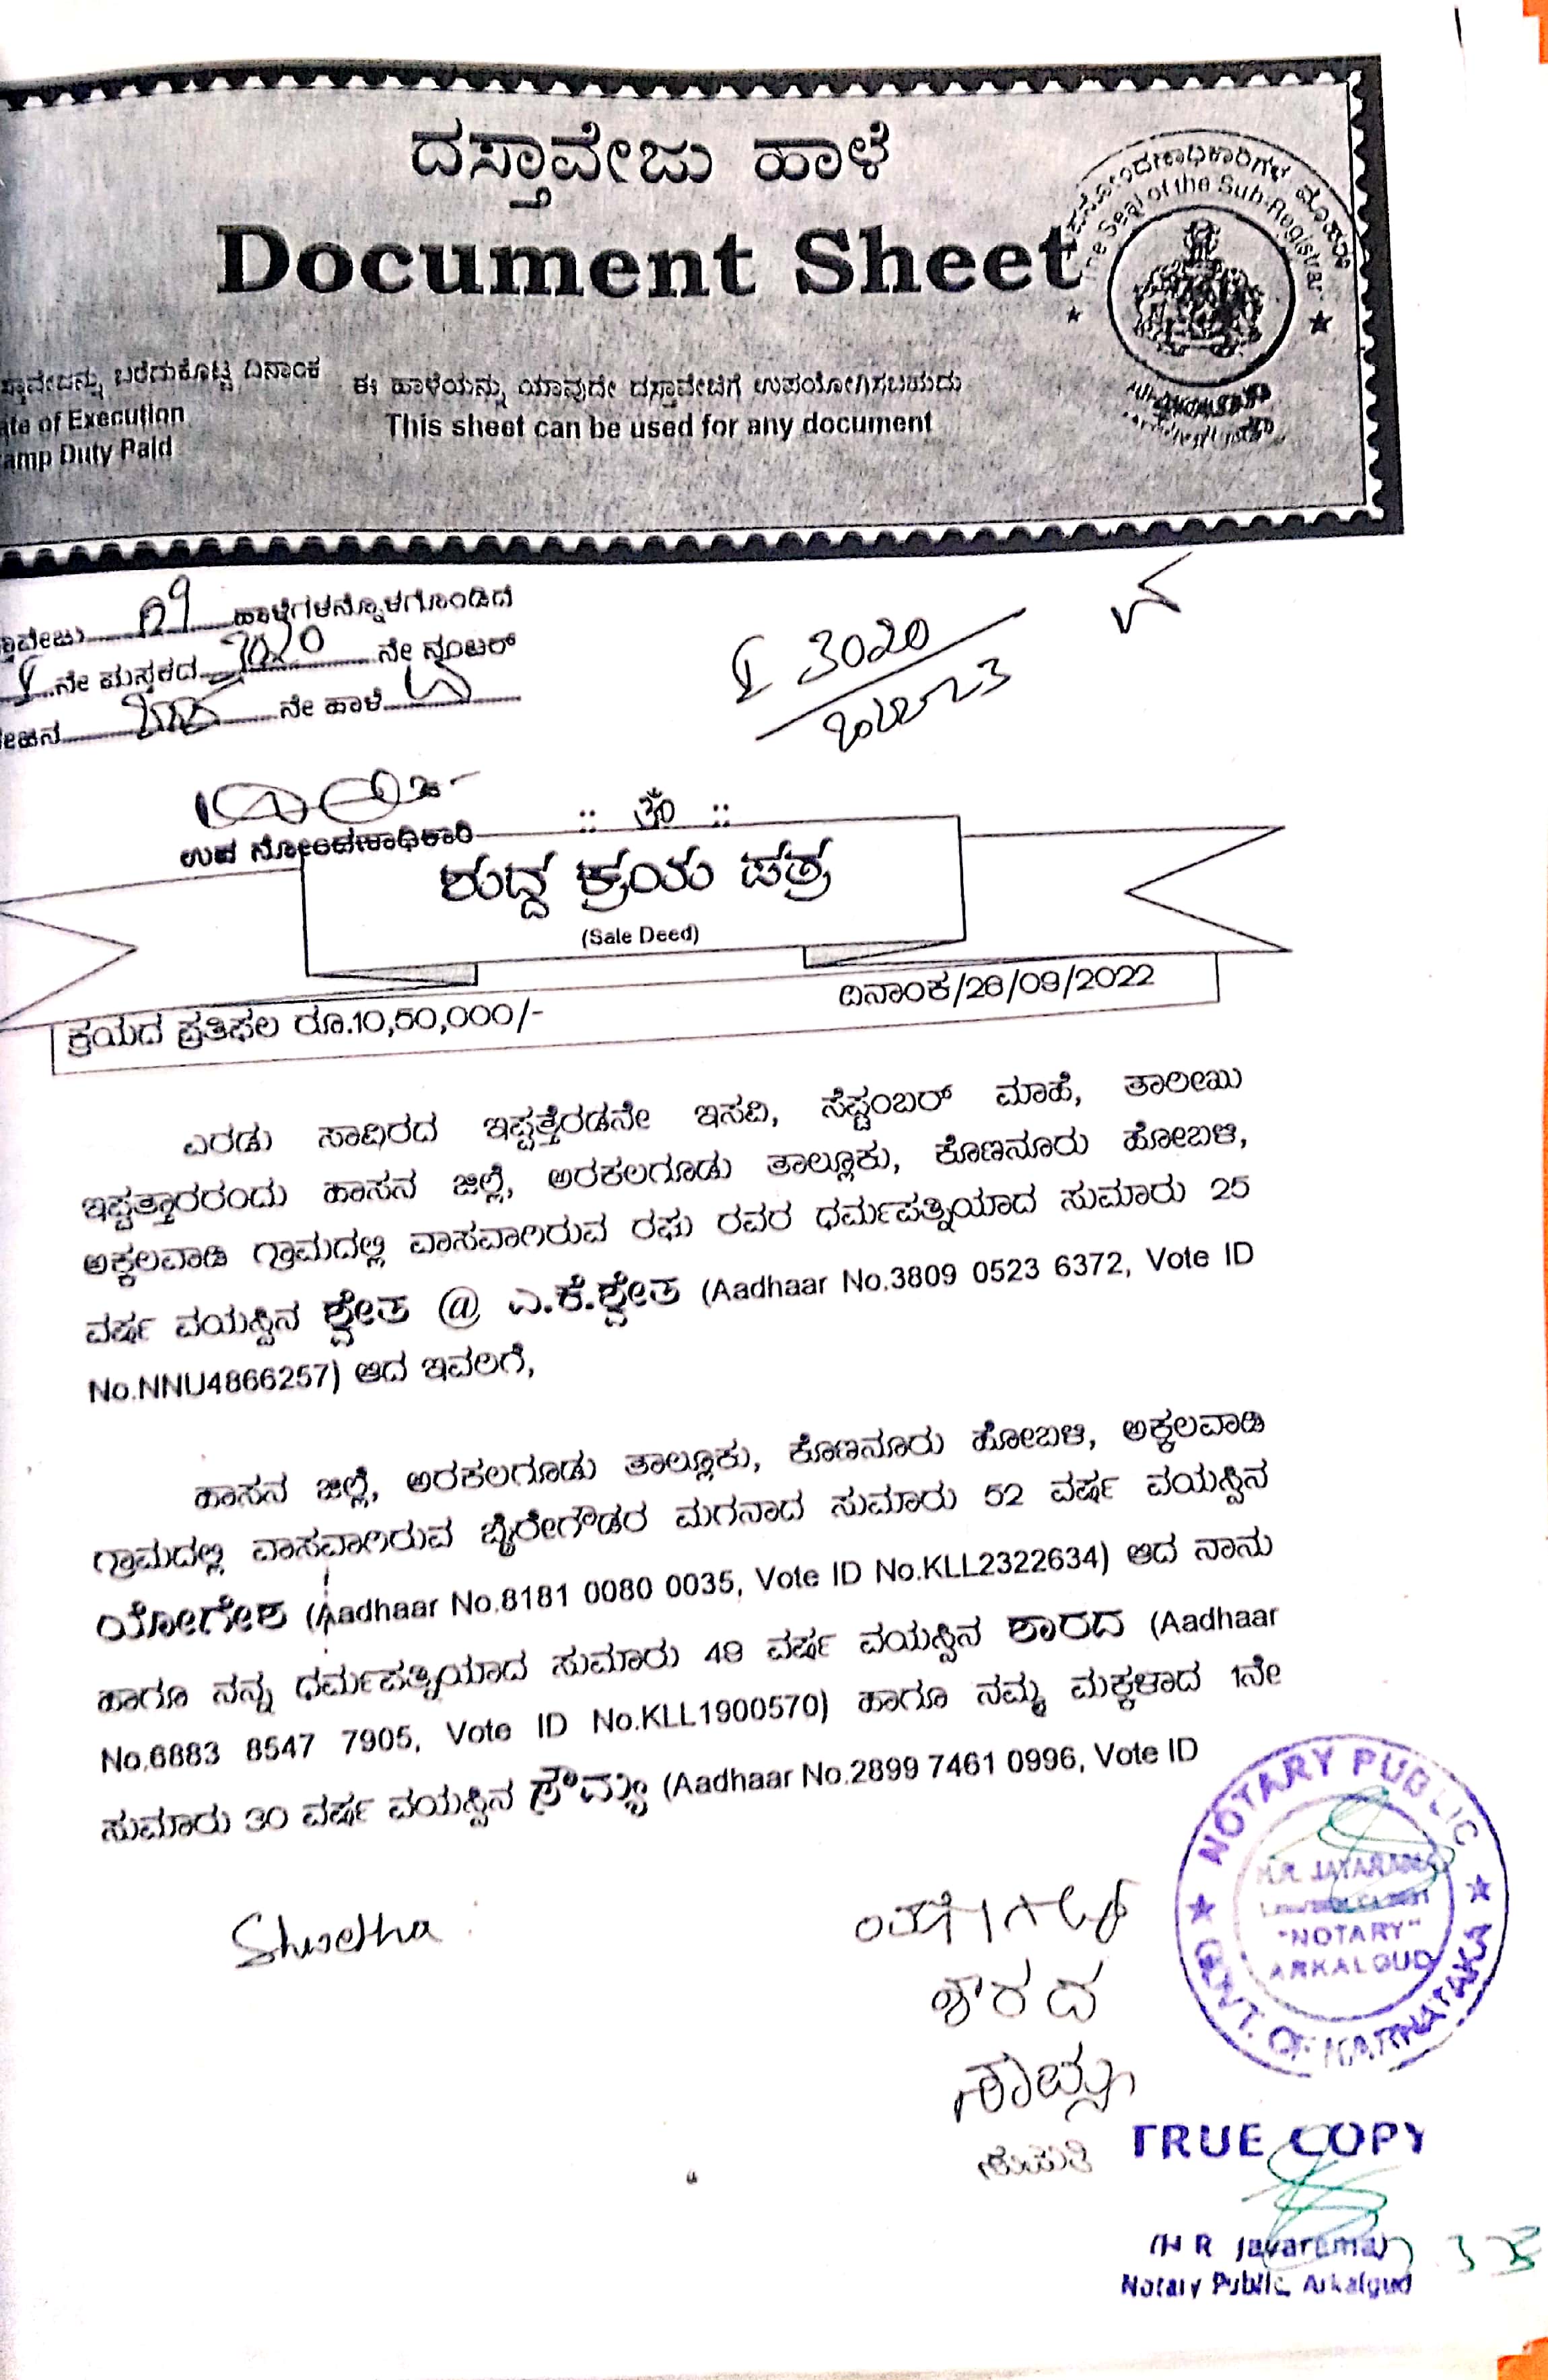 ದಸ್ತಾವೇಜು ಹಾಳೆ
Document Sheet
ಉಪನೋಂದಣಾಧಿಕಾರಿಗಳ ಮೊಹರು
The Seal of the Sub-Registrar
ಬರೆದುಕೊಟ್ಟ ದಿನಾಂಕ
ಈ ಹಾಳೆಯನ್ನು ಯಾವುದೇ ದಸ್ತಾವೇಜಿಗೆ ಉಪಯೋಗಿಸಬಹುದು
of Execution
This sheet can be used for any document
Duty Paid
ಹಾಳೆಗಳನ್ನೊಳಗೊಂಡಿದೆ
I ನೇ ಪುಸ್ತಕದ 3020 ನೇ ನಂಬರ್
ನೇ ಹಾಳೆ
I 3020
ಉಪ ನೋಂದಣಾಧಿಕಾರಿ
:: ॐ ::
ಶುದ್ಧ ಕ್ರಯ ಪತ್ರ
(Sale Deed)
ಕ್ರಯದ ಪ್ರತಿಫಲ ರೂ.10,50,000/- ದಿನಾಂಕ/26/09/2022
ಎರಡು ಸಾವಿರದ ಇಪ್ಪತ್ತೆರಡನೇ ಇಸವಿ, ಸೆಪ್ಟಂಬರ್ ಮಾಹೆ, ತಾರೀಖು
ಇಪ್ಪತ್ತಾರರಂದು ಹಾಸನ ಜಿಲ್ಲೆ, ಅರಕಲಗೂಡು ತಾಲ್ಲೂಕು, ಕೊಣನೂರು ಹೋಬಳಿ,
ಅಕ್ಕಲವಾಡಿ ಗ್ರಾಮದಲ್ಲಿ ವಾಸವಾಗಿರುವ ರಘು ರವರ ಧರ್ಮಪತ್ನಿಯಾದ ಸುಮಾರು 25
ವರ್ಷ ವಯಸ್ಸಿನ ಶ್ವೇತ @ ಎ.ಕೆ.ಶ್ವೇತ (Aadhaar No.3809 0523 6372, Vote ID
No.NNU4866257) ಆದ ಇವರಿಗೆ,
ಹಾಸನ ಜಿಲ್ಲೆ, ಅರಕಲಗೂಡು ತಾಲ್ಲೂಕು, ಕೊಣನೂರು ಹೋಬಳಿ, ಅಕ್ಕಲವಾಡಿ
ಗ್ರಾಮದಲ್ಲಿ ವಾಸವಾಗಿರುವ ಬೈರೇಗೌಡರ ಮಗನಾದ ಸುಮಾರು 52 ವರ್ಷ ವಯಸ್ಸಿನ
ಯೋಗೇಶ (Aadhaar No.8181 0080 0035, Vote ID No.KLL2322634) ಆದ ನಾನು
ಹಾಗೂ ನನ್ನ ಧರ್ಮಪತ್ನಿಯಾದ ಸುಮಾರು 48 ವರ್ಷ ವಯಸ್ಸಿನ ಶಾರದ (Aadhaar
No.6883 8547 7905, Vote ID No.KLL1900570) ಹಾಗೂ ನಮ್ಮ ಮಕ್ಕಳಾದ 1ನೇ
ಸುಮಾರು 30 ವರ್ಷ ವಯಸ್ಸಿನ ಸೌಮ್ಯ (Aadhaar No.2899 7461 0996, Vote ID
Shwetha
ಶಾರದ
NOTARY PUBLIC
H.R. JAYARAMA
"NOTARY"
ARKALGUD
GOVT. OF KARNATAKA
TRUE COPY
(H R Jayarama)
Notary Public, Arkalgud